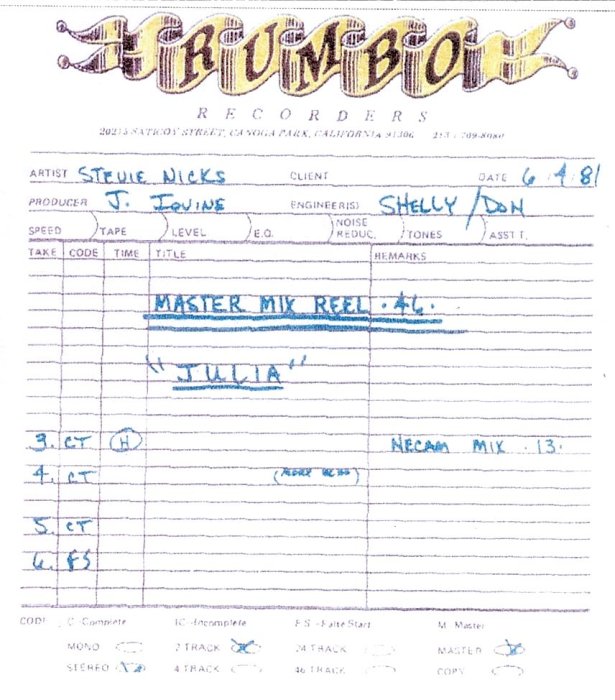 RUMBO
RECORDERS
20215 SATICOY STREET, CANOGA PARK, CALIFORNIA 91306 213 / 709-8080
ARTIST STEVIE NICKS CLIENT DATE 6.4.81
PRODUCER J. IOVINE ENGINEER(S) SHELLY/DON
SPEED TAPE LEVEL E.Q. NOISE REDUC. TONES ASST.
TAKE CODE TIME TITLE REMARKS
MASTER MIX REEL .46.
"JULIA"
3. CT H NECAM MIX .13.
4. CT (MORE
5. CT
6. FS
CODE C -Complete IC -Incomplete F.S. -False Start M Master
MONO 2 TRACK 24 TRACK MASTER
STEREO 4 TRACK 46 TRACK COPY